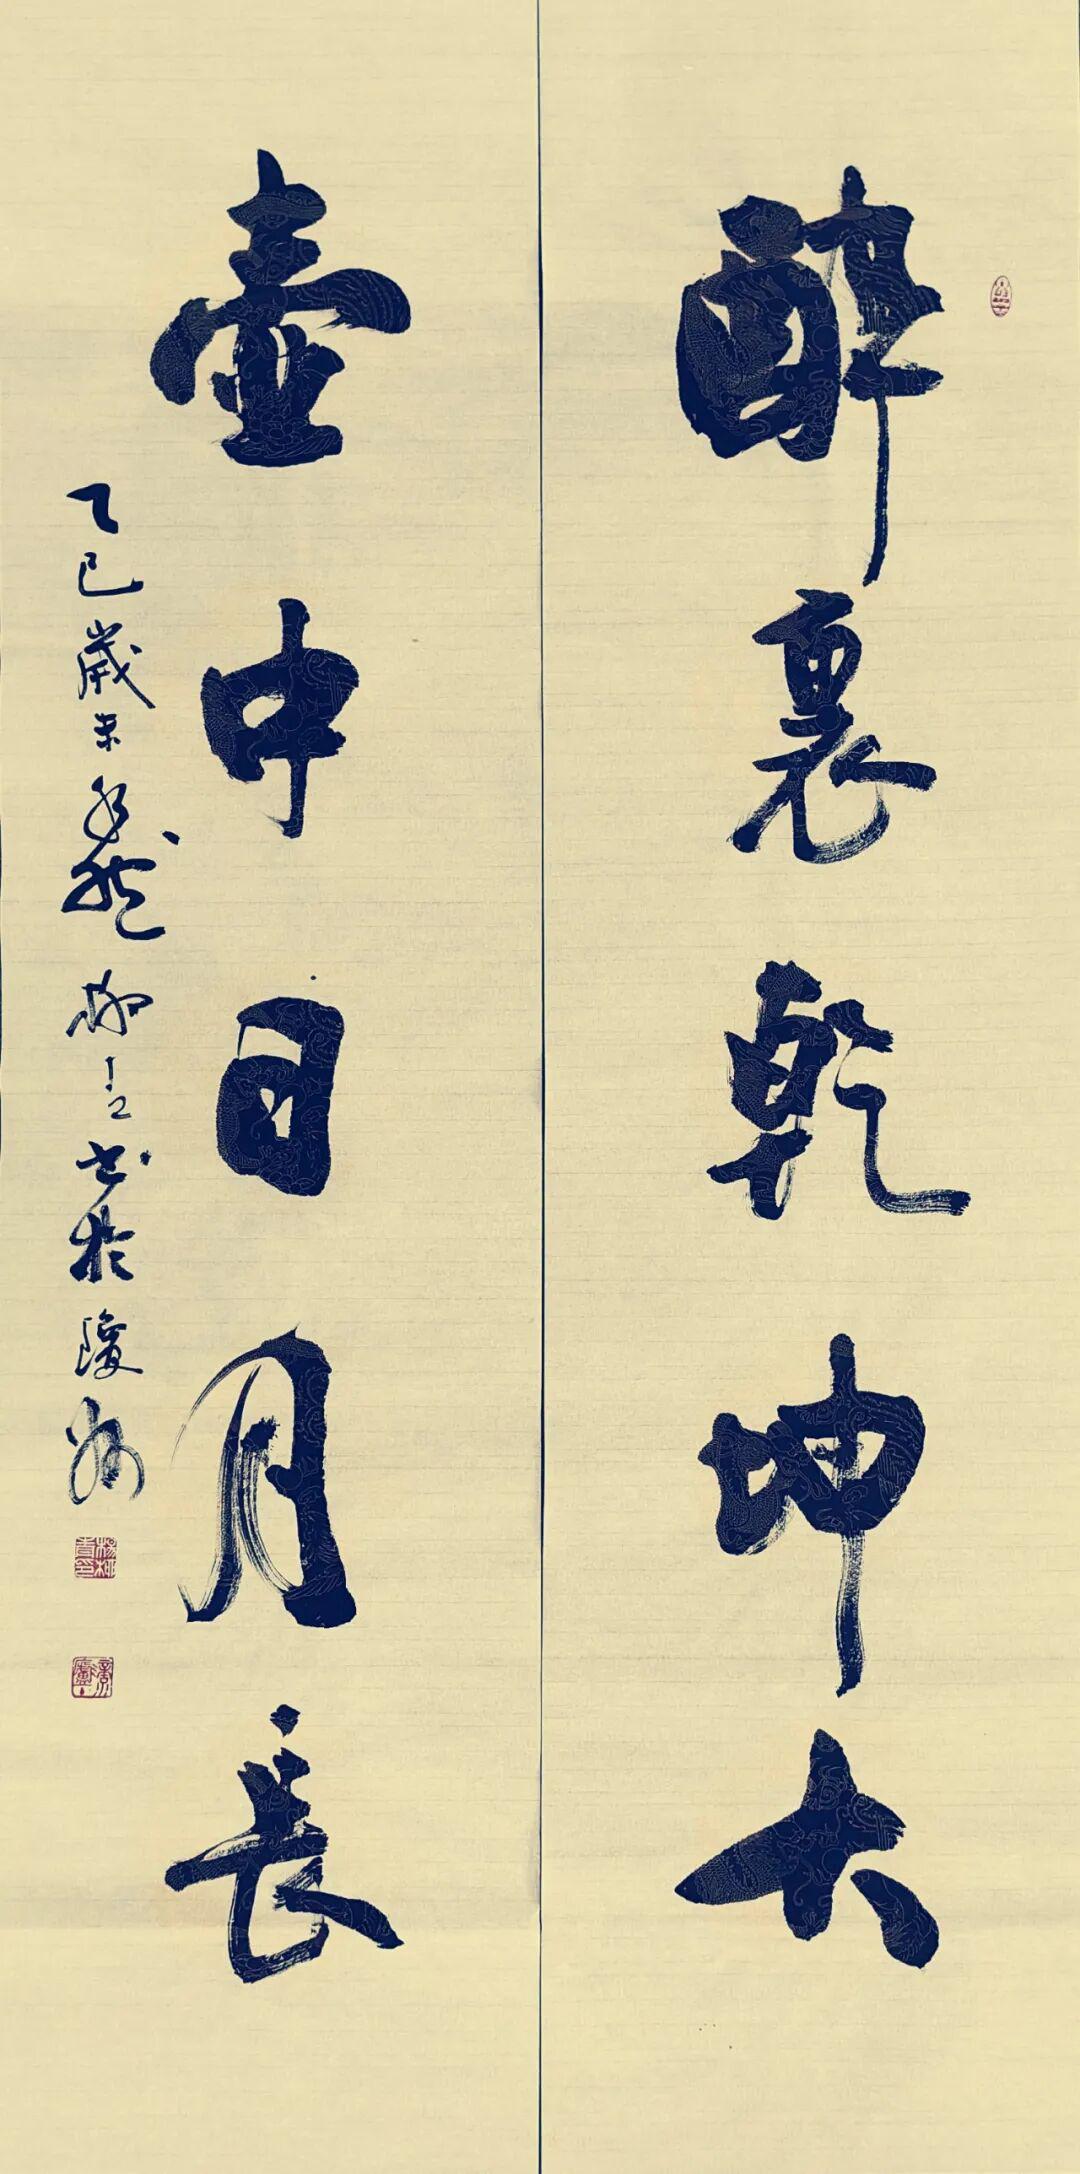 醉裏乾坤大
壺中日月長
乙巳歲末 柳 書於瓊州